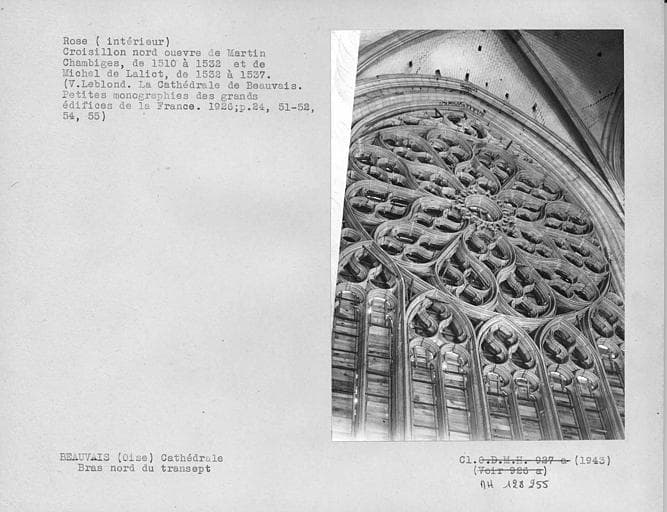 Rose ( intérieur)
Croisillon nord ouevre de Martin
Chambiges, de 1510 à 1532 et de
Michel de Lalict, de 1532 à 1537.
(V.Leblond. La Cathédrale de Beauvais.
Petites monographies des grands
édifices de la France. 1926;p.24, 51-52,
54, 55)
BEAUVAIS (Oise) Cathédrale
Bras nord du transept
Cl.C.D.M.H. 927 a (1943)
(Voir 926 a)
MH 128255